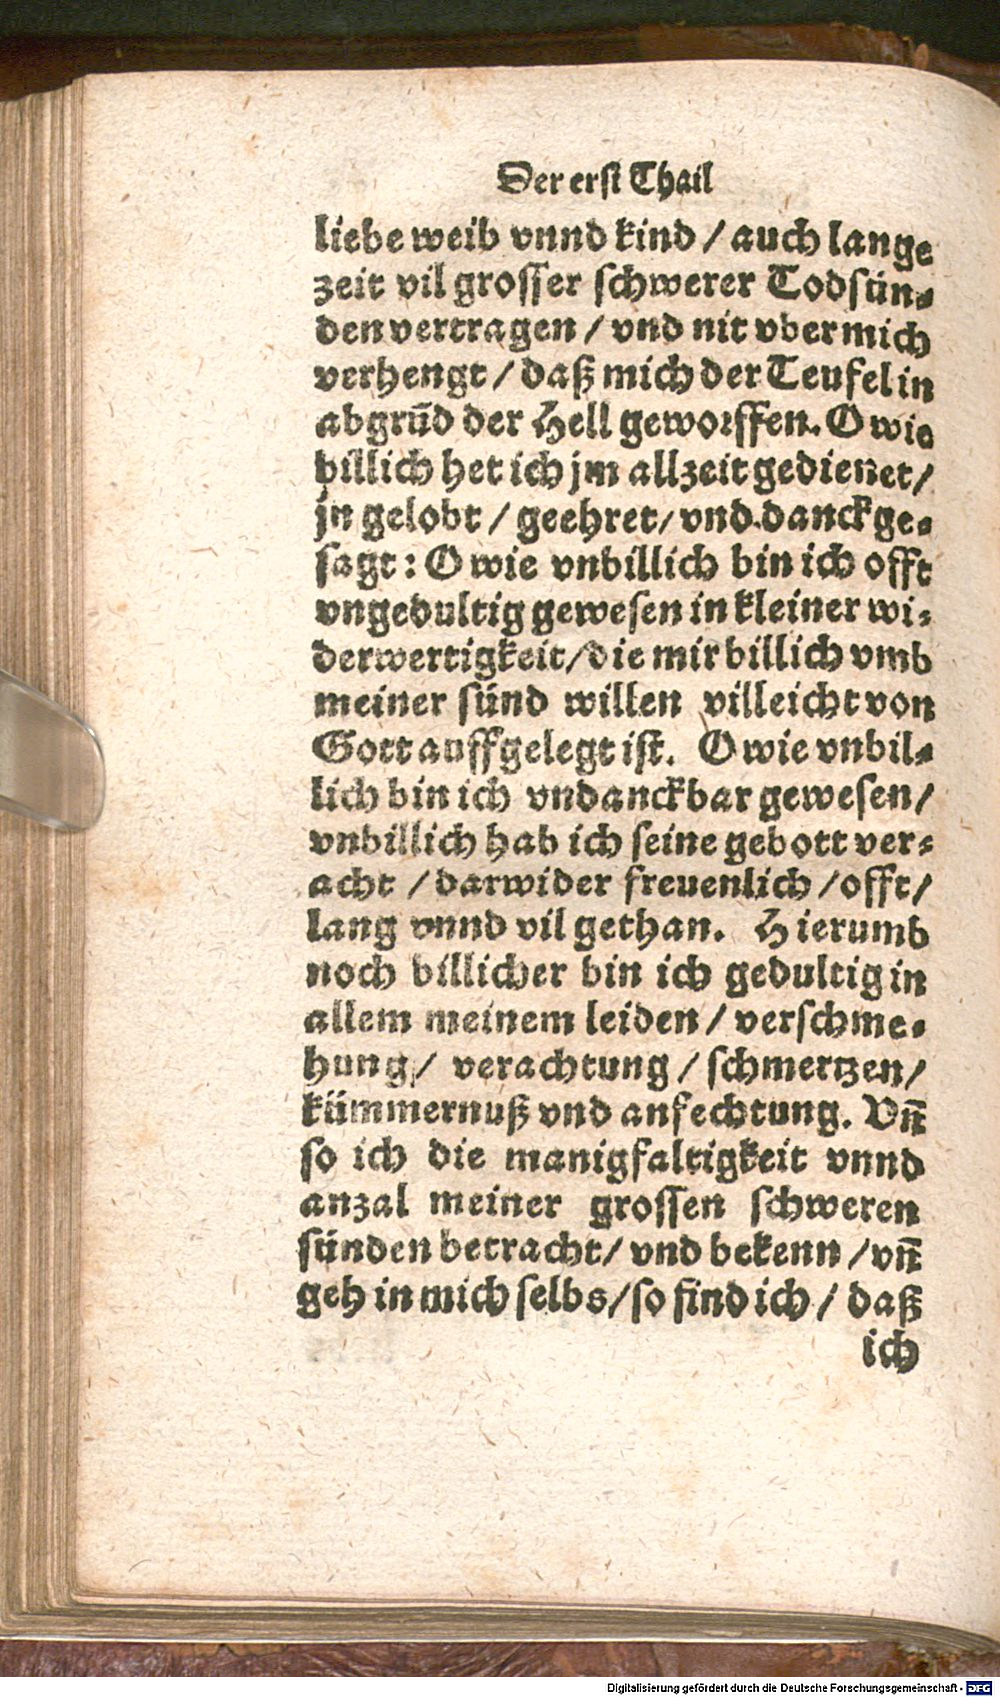 Der erst Thail
liebe weib vnnd kind / auch lange
zeit vil grosser schwerer Todsün-
den vertragen / vnd nit vber mich
verhengt / daß mich der Teufel in
abgrūd der Hell geworffen. O wie
billich het ich jm allzeit gedienet /
jn gelobt / geehret / vnd danck ge-
sagt : O wie vnbillich bin ich offt
vngedultig gewesen in kleiner wi-
derwertigkeit / die mir billich vmb
meiner sünd willen villeicht von
Gott auffgelegt ist. O wie vnbil-
lich bin ich vndanckbar gewesen /
vnbillich hab ich seine gebott ver-
acht / darwider freuenlich / offt /
lang vnnd vil gethan. Hierumb
noch billicher bin ich gedultig in
allem meinem leiden / verschme-
hung / verachtung / schmertzen /
kümmernuß vnd anfechtung. Vn̄
so ich die manigfaltigkeit vnnd
anzal meiner grossen schweren
sünden betracht / vnd bekenn / vn̄
geh in mich selbs / so find ich / daß
ich
Digitalisierung gefördert durch die Deutsche Forschungsgemeinschaft - DFG